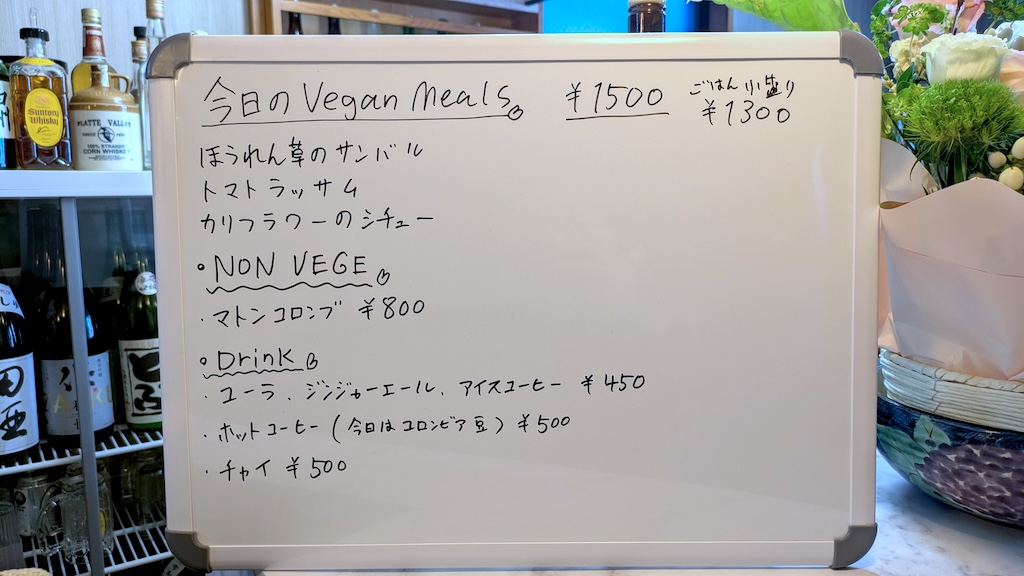 今日のVegan Meals ¥1500 ごはん小盛り ¥1300
ほうれん草のサンバル
トマトラッサム
カリフラワーのシチュー
・NON VEGE
・マトンコロンブ ¥800
・Drink
・コーラ、ジンジャーエール、アイスコーヒー ¥450
・ホットコーヒー(今日はコロンビア豆) ¥500
・チャイ ¥500
Suntory
Whisky
PLATTE VALLEY
100% STRAIGHT
CORN WHISKEY
田酒